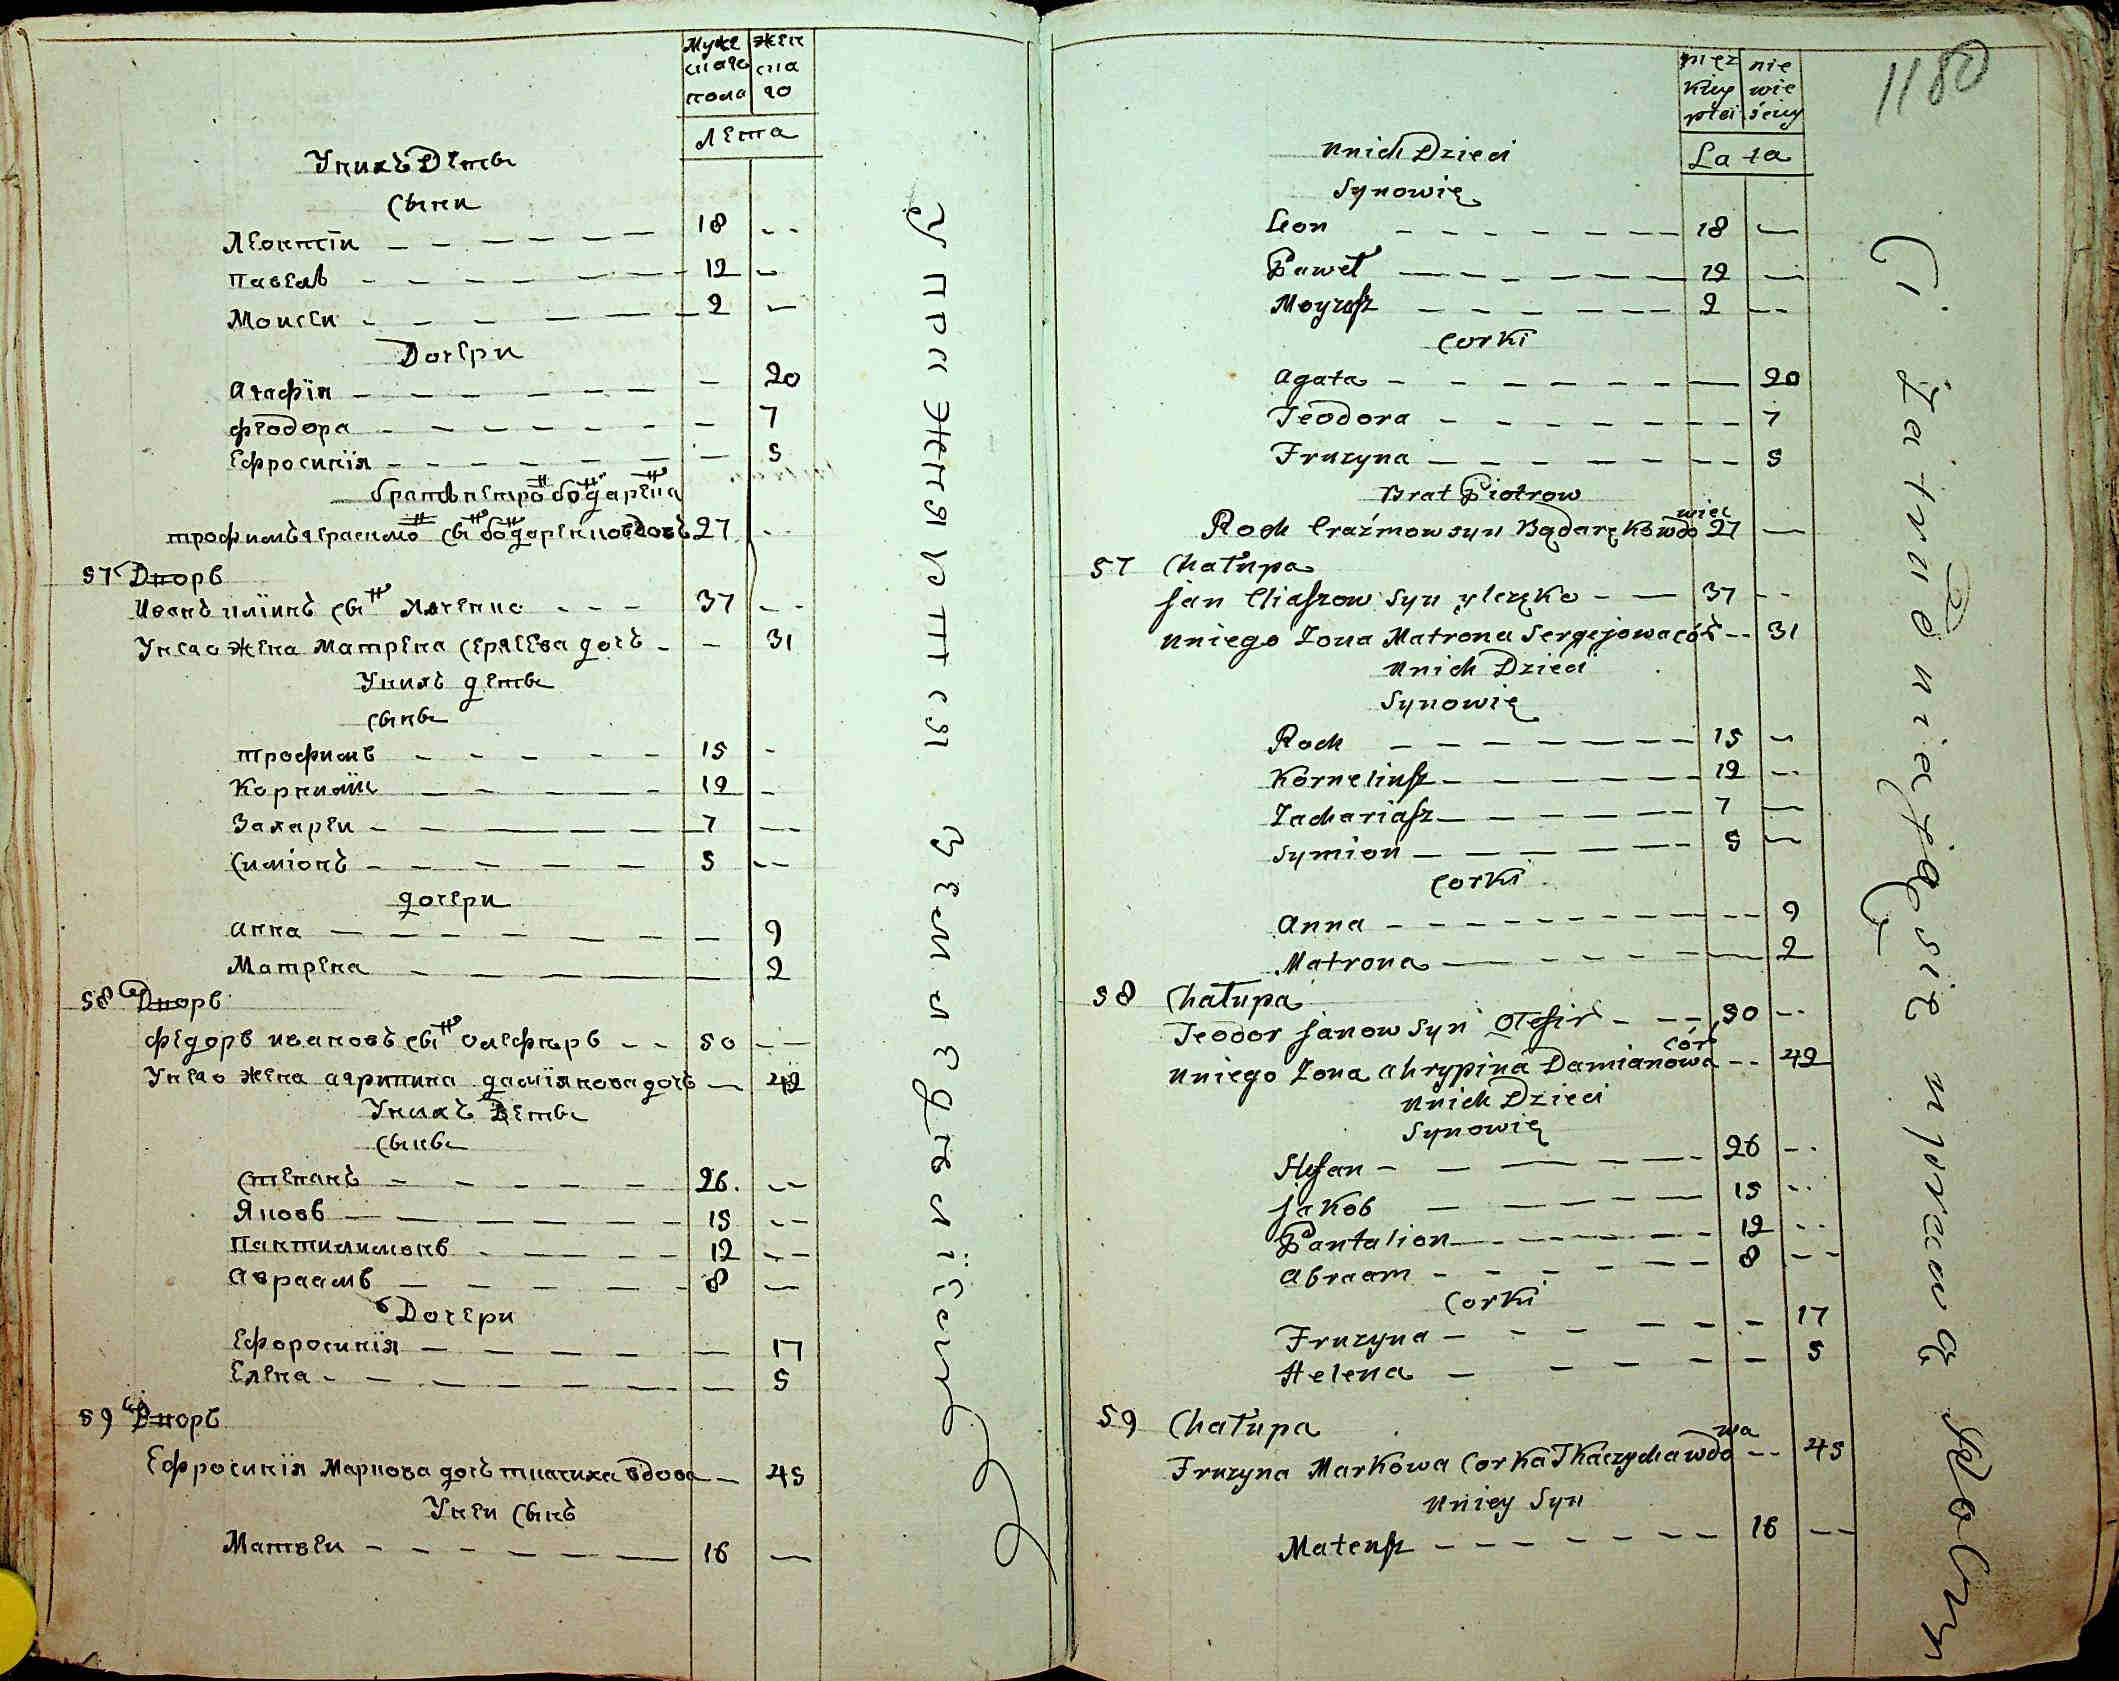 Мужескаго пола | женскаго
Лета
У нихъ Дети
Сыни
Леонтїи — 18 —
Павелъ — 12 —
Моисеи — 2 —
Дочери
Агафїя — — 20
Феодора — — 7
Ефросинїя — — 5
братъ петровъ бондаренка
трофимъ герасимовъ сынъ бондаренко вдовъ 27 —
57 Дворъ
Иванъ илїинъ сынъ — 37 —
У него жена Матрена Сергеева дочъ — — 31
У нихъ дети
сыны
трофимъ — 15 —
Корнилїи — 12 —
Захареи — 7 —
Симіонъ — 5 —
дочери
анна — — 9
Матрена — — 2
58 Дворъ
федоръ ивановъ сынъ олефиръ — 50 —
У него жена агрипина дамїянова дочъ — 42
У нихъ Дети
Сыны
Степанъ — 26 —
Яковъ — 15 —
Пантилимонъ — 12 —
Авраамъ — 8 —
Дочери
Ефоросинїя — — 17
Елена — — 5
59 Дворъ
Ефросинїя Маркова дочъ ткачиха вдова — 45
У неи Сынъ
Матвеи — 16 —
Упражняются земледѣліемъ
1180
męzkiey płci | niewieściey
Lata
U nich Dzieci
Synowię
Leon — 18 —
Paweł — 12 —
Moyzesz — 2 —
Corki
Agata — — 20
Teodora — — 7
Fruzyna — — 5
Brat Piotrow
Roch Eraźmow syn Bądaręko wdowiec 27 —
57 Chałupa
Jan Eliaszow syn — 37 —
U niego Zona Matrona Sergejowa cór — 31
U nich Dzieci
Synowię
Roch — 15 —
Korneliusz — 12 —
Zachariasz — 7 —
Symion — 5 —
Corki
Anna — — 9
Matrona — — 2
58 Chałupa
Teodor Janow Syn Olefir — 50 —
U niego Zona Ahrypina Damianowa cór — 42
U nich Dzieci
Synowię
Stefan — 26 —
Jakob — 15 —
Pantalion — 12 —
Abraam — 8 —
Corki
Fruzyna — — 17
Helena — — 5
59 Chałupa
Fruzyna Markowa Corka Tkaczycha wdowa — 45
U niey Syn
Mateusz — 16 —
Ci Zatrudniają się uprawą Roli